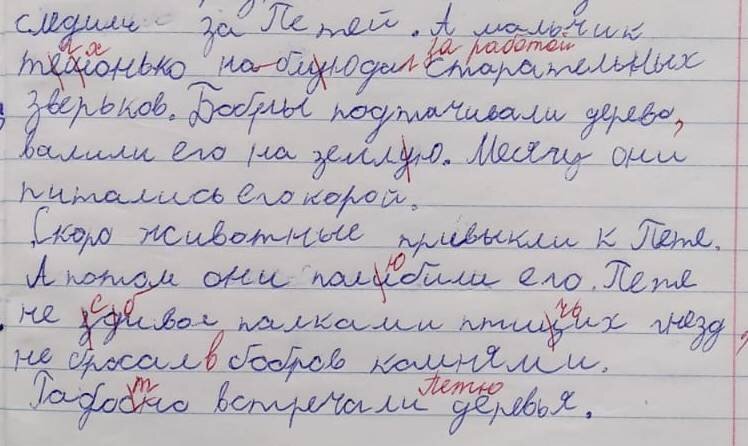 следили за Петей. А мальчик
тихонько наблюдал за работой старательных
зверьков. Бобры подтачивали дерево,
валили его на землю. Месяц они
питались его корой.
Скоро животные привыкли к Пете.
А потом они полюбили его. Петя
не сбивал палками птичьих гнезд,
не бросал в бобров камнями.
Радостно встречали Петю деревья.